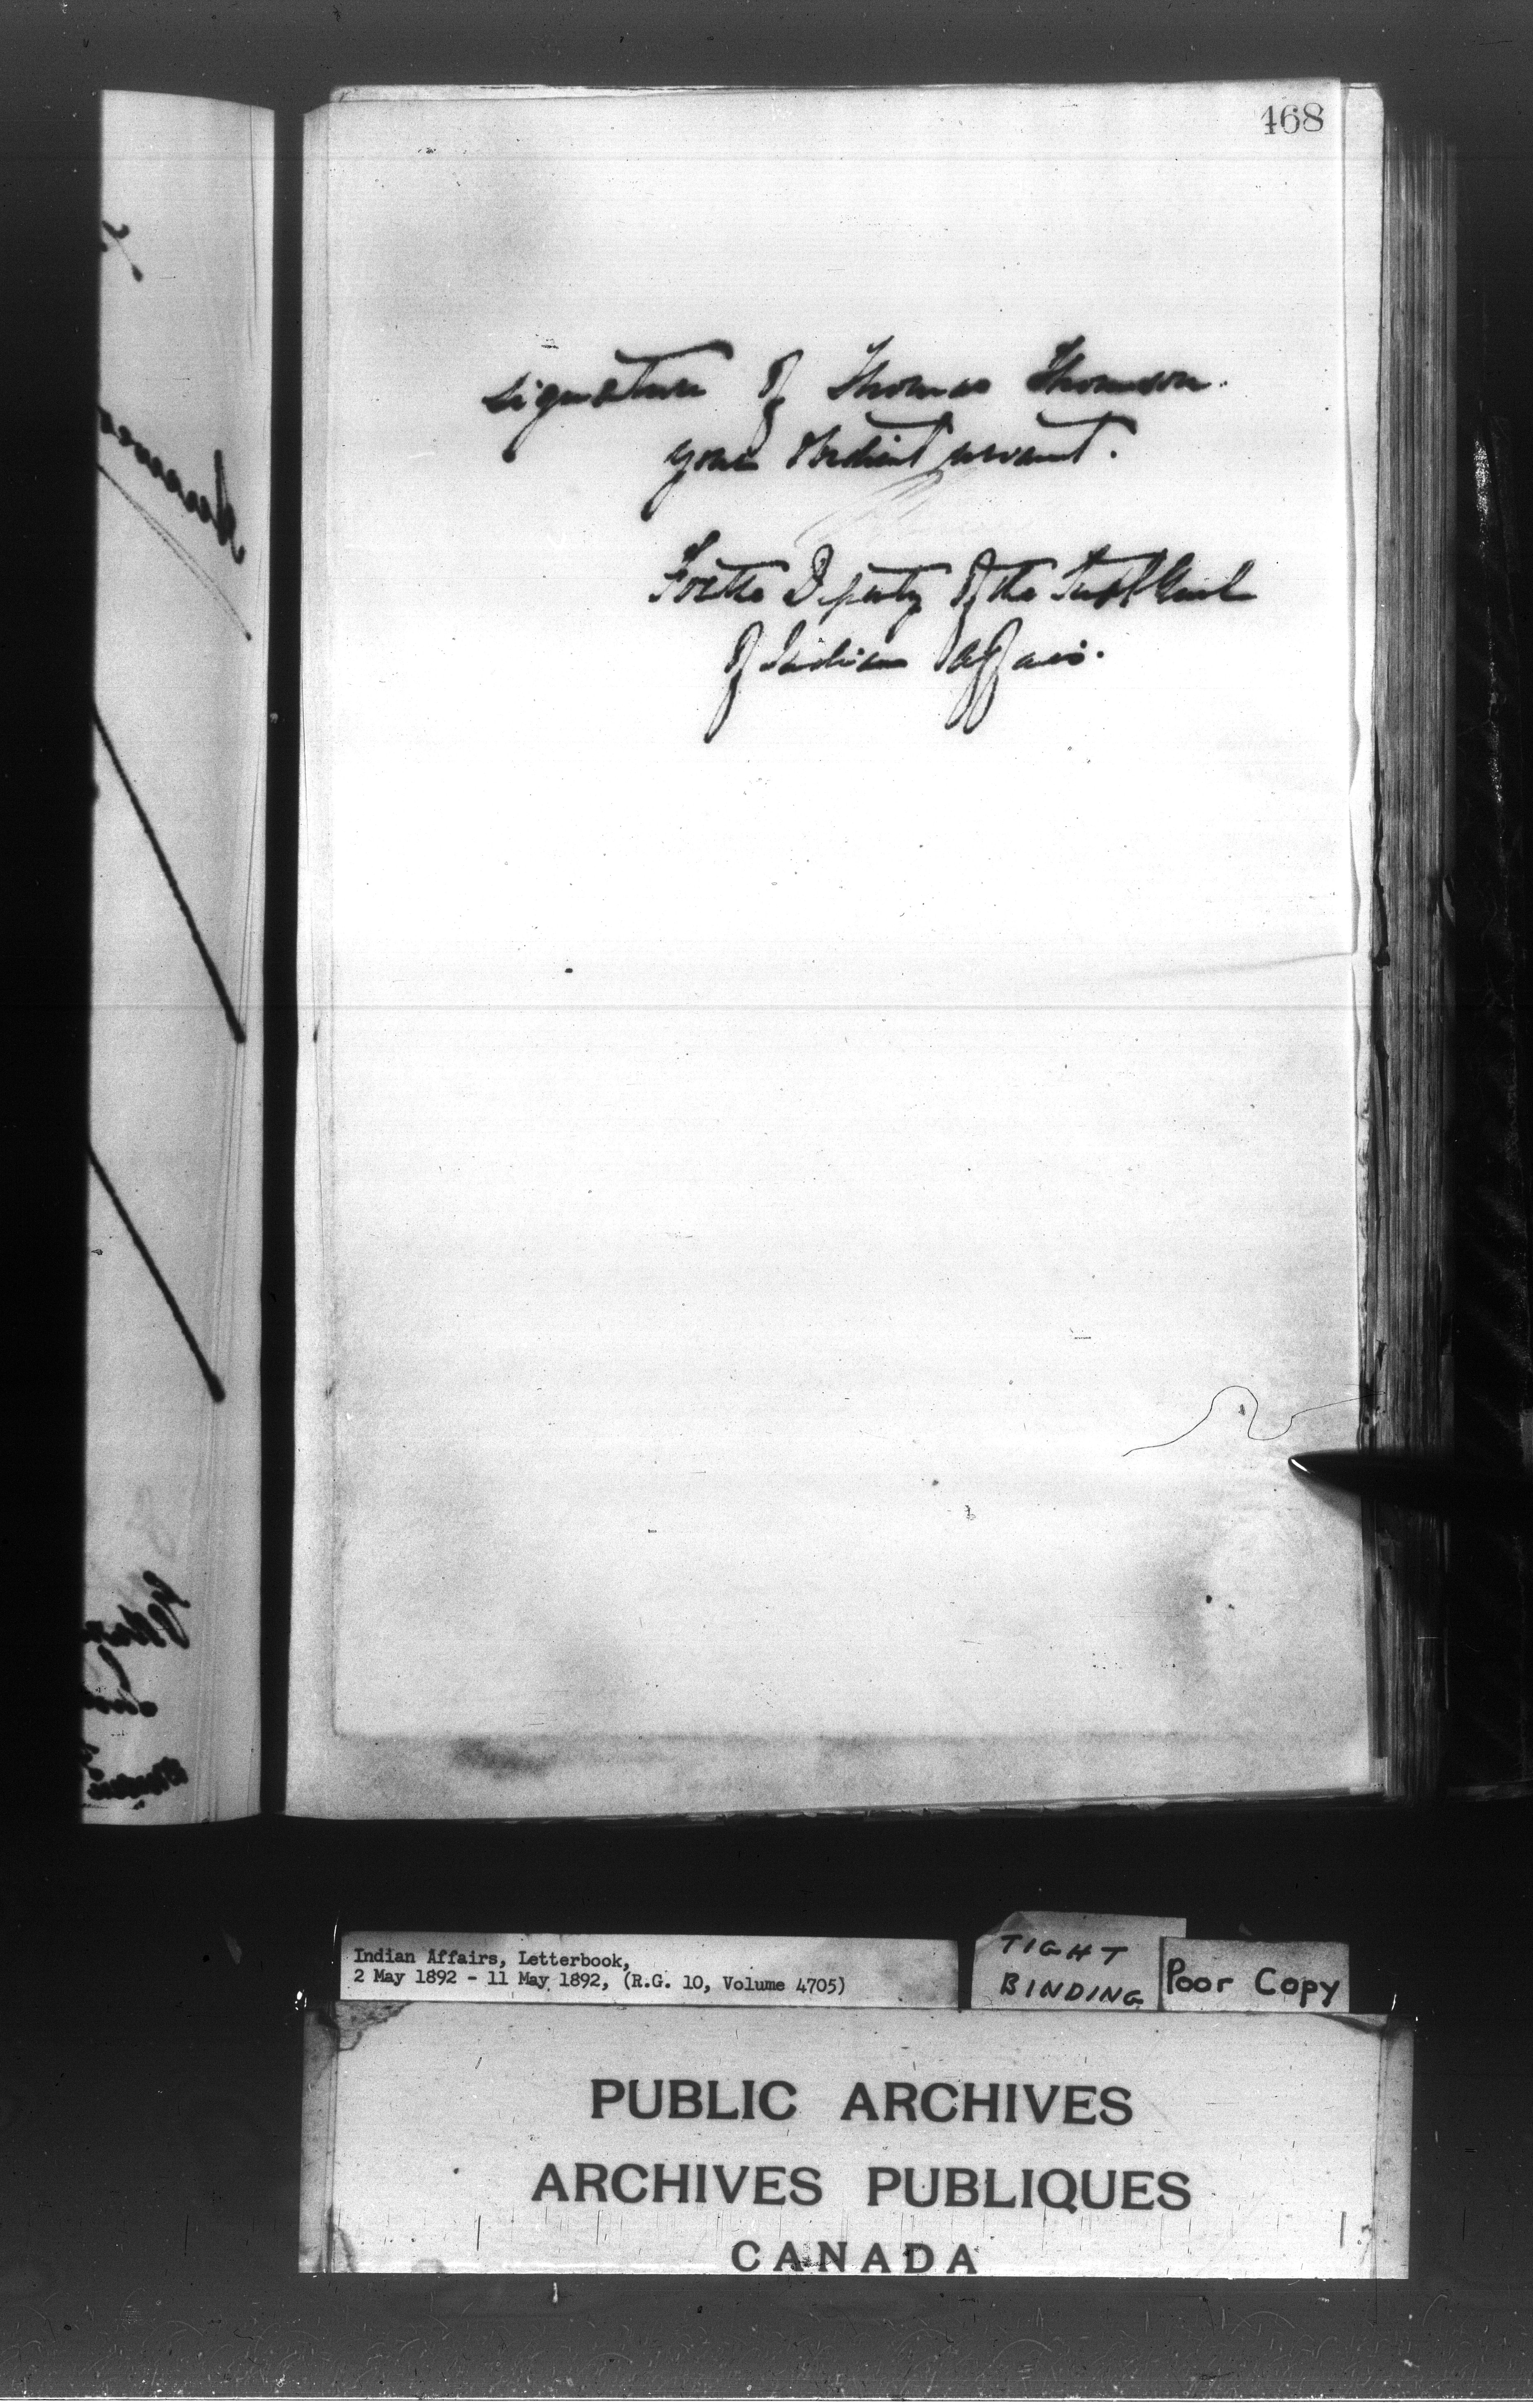 468
signature of Thomas Thomson.
your obedient servant.
For the Deputy of the Supt Genl
of Indian Affairs.
Indian Affairs, Letterbook,
2 May 1892 - 11 May 1892, (R.G. 10, Volume 4705)
TIGHT
BINDING
Poor Copy
PUBLIC ARCHIVES
ARCHIVES PUBLIQUES
CANADA